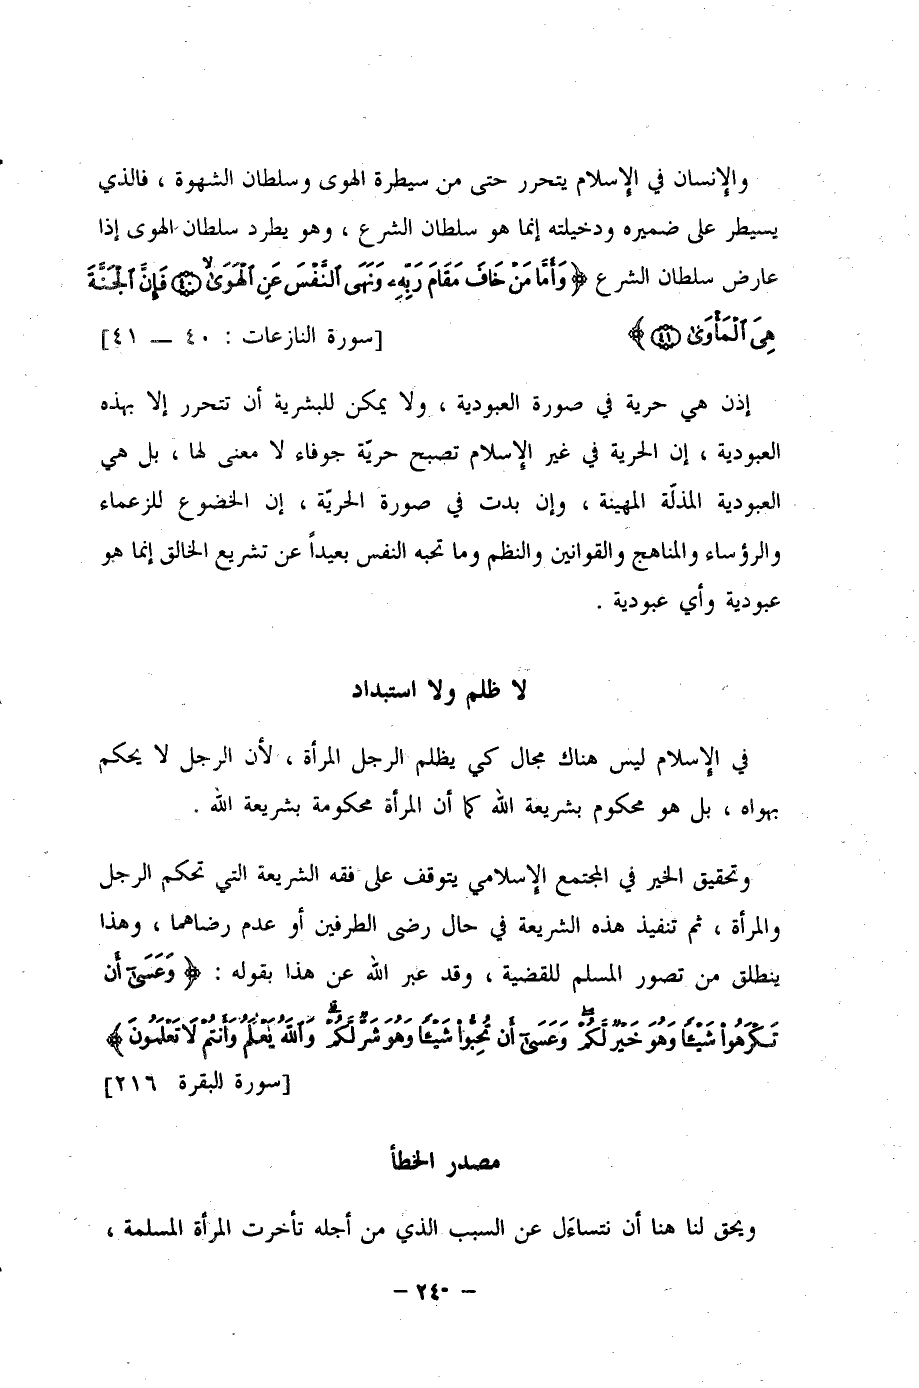 والإنسان في الإسلام يتحرر حتى من سيطرة الهوى وسلطان الشهوة ، فالذي
يسيطر على ضميره ودخيلته إنما هو سلطان الشرع ، وهو يطرد سلطان الهوى إذا
عارض سلطان الشرع ﴿ وَأَمَّا مَنْ خَافَ مَقَامَ رَبِّهِۦ وَنَهَى ٱلنَّفْسَ عَنِ ٱلْهَوَىٰ ۙ ﴿٤٠﴾ فَإِنَّ ٱلْجَنَّةَ
هِىَ ٱلْمَأْوَىٰ ﴿٤١﴾ ﴾ [سورة النازعات : ٤٠ — ٤١]
إذن هي حرية في صورة العبودية ، ولا يمكن للبشرية أن تتحرر إلا بهذه
العبودية ، إن الحرية في غير الإسلام تصبح حريّة جوفاء لا معنى لها ، بل هي
العبودية المذلّة المهينة ، وإن بدت في صورة الحريّة ، إن الخضوع للزعماء
والرؤساء والمناهج والقوانين والنظم وما تحبه النفس بعيداً عن تشريع الخالق إنما هو
عبودية وأي عبودية .
لا ظلم ولا استبداد
في الإسلام ليس هناك مجال كي يظلم الرجل المرأة ، لأن الرجل لا يحكم
بهواه ، بل هو محكوم بشريعة الله كما أن المرأة محكومة بشريعة الله .
وتحقيق الخير في المجتمع الإسلامي يتوقف على فقه الشريعة التي تحكم الرجل
والمرأة ، ثم تنفيذ هذه الشريعة في حال رضى الطرفين أو عدم رضاهما ، وهذا
ينطلق من تصور المسلم للقضية ، وقد عبر الله عن هذا بقوله : ﴿ وَعَسَىٰٓ أَن
تَكْرَهُوا۟ شَيْـًٔا وَهُوَ خَيْرٌ لَّكُمْ ۖ وَعَسَىٰٓ أَن تُحِبُّوا۟ شَيْـًٔا وَهُوَ شَرٌّ لَّكُمْ ۗ وَٱللَّهُ يَعْلَمُ وَأَنتُمْ لَا تَعْلَمُونَ ﴾
[سورة البقرة ٢١٦]
مصدر الخطأ
ويحق لنا هنا أن نتساءَل عن السبب الذي من أجله تأخرت المرأة المسلمة ،
– ٢٤٠ –